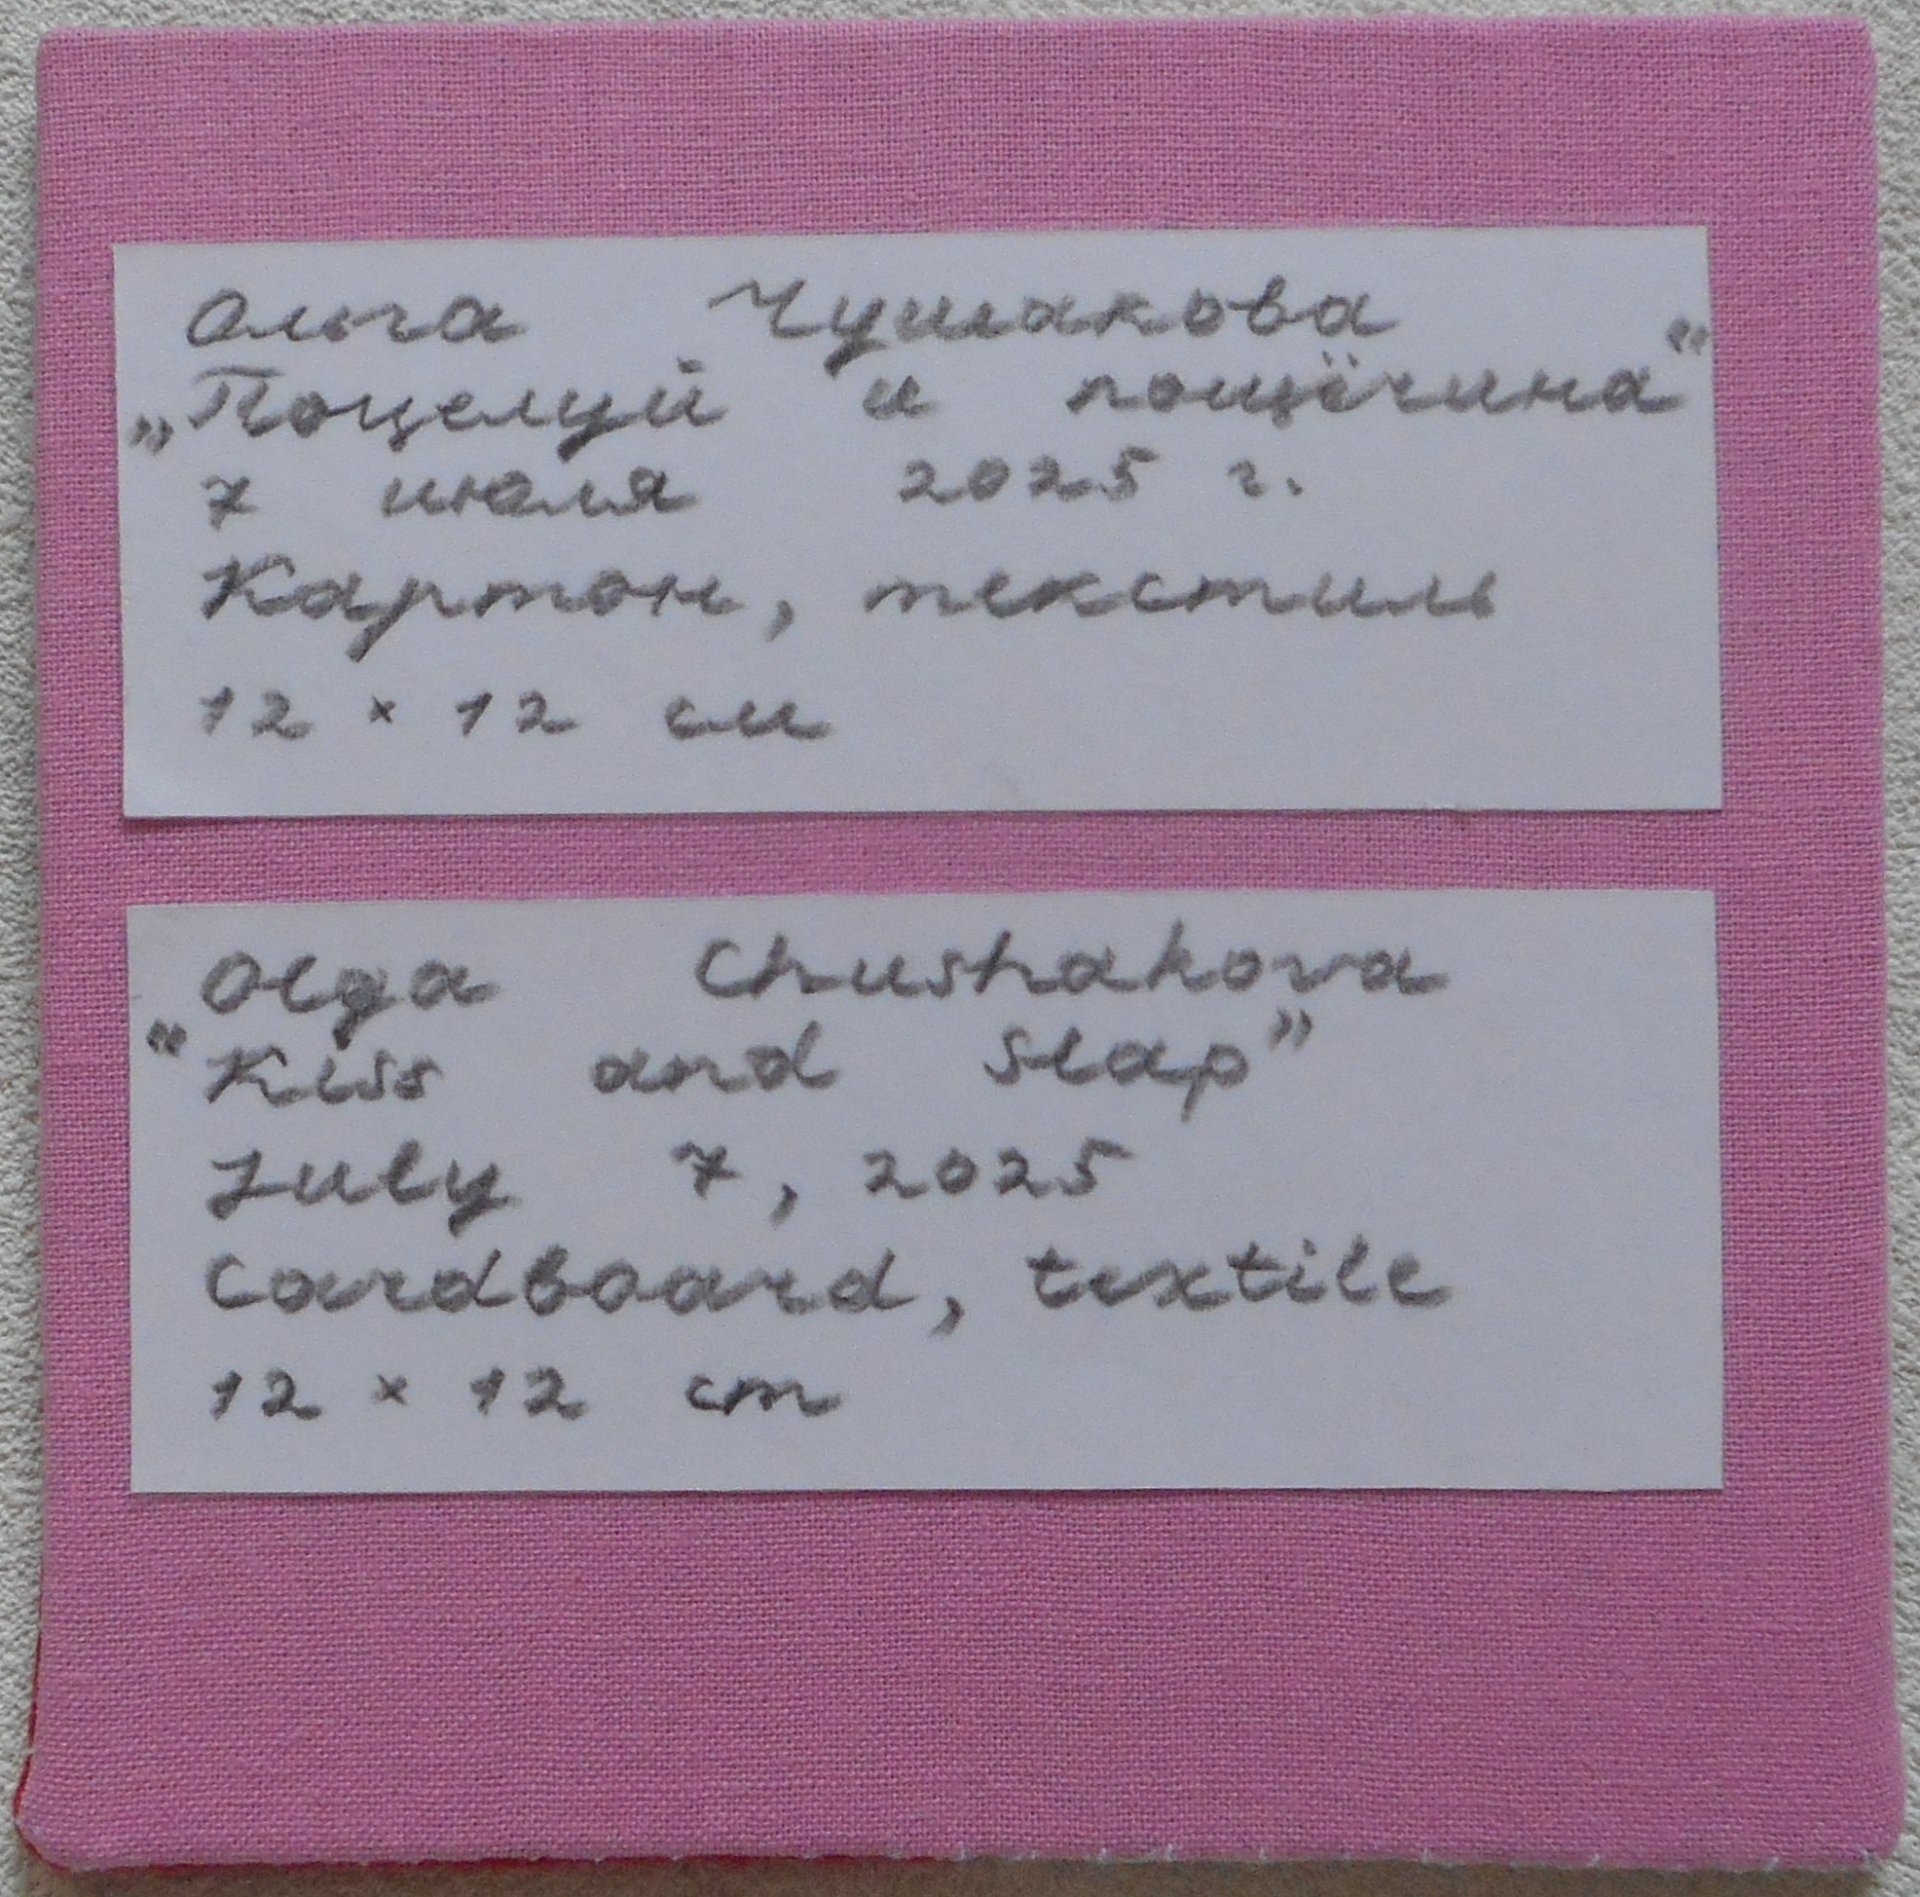 Ольга Чушакова
„Поцелуй и пощёчина“
7 июля 2025 г.
Картон, текстиль
12 × 12 см
Olga Chushakova
“Kiss and slap”
July 7, 2025
Cardboard, textile
12 × 12 cm